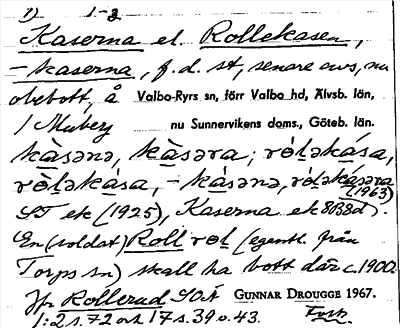 1) 1-2
Kaserna el. Rollekasen,
-kaserna, f.d. st, senare avs, nu
obebott, å Valbo-Ryrs sn, förr Valbo hd, Älvsb. län,
/ Muberg nu Sunnervikens doms., Göteb. län.
kàsənə, kàsəra; ròləkása,
ròləkása, -kásənə, ròləkásəra
(1963)
ST ek (1925), Kaserna ek 8B8d.
En (soldat) Roll rol (egentl. från
Torps sn) skall ha bott där c. 1900.
Jfr Rollerud SOÄ GUNNAR DROUGGE 1967.
1:2 s. 72 och 17 s. 39 o. 43.